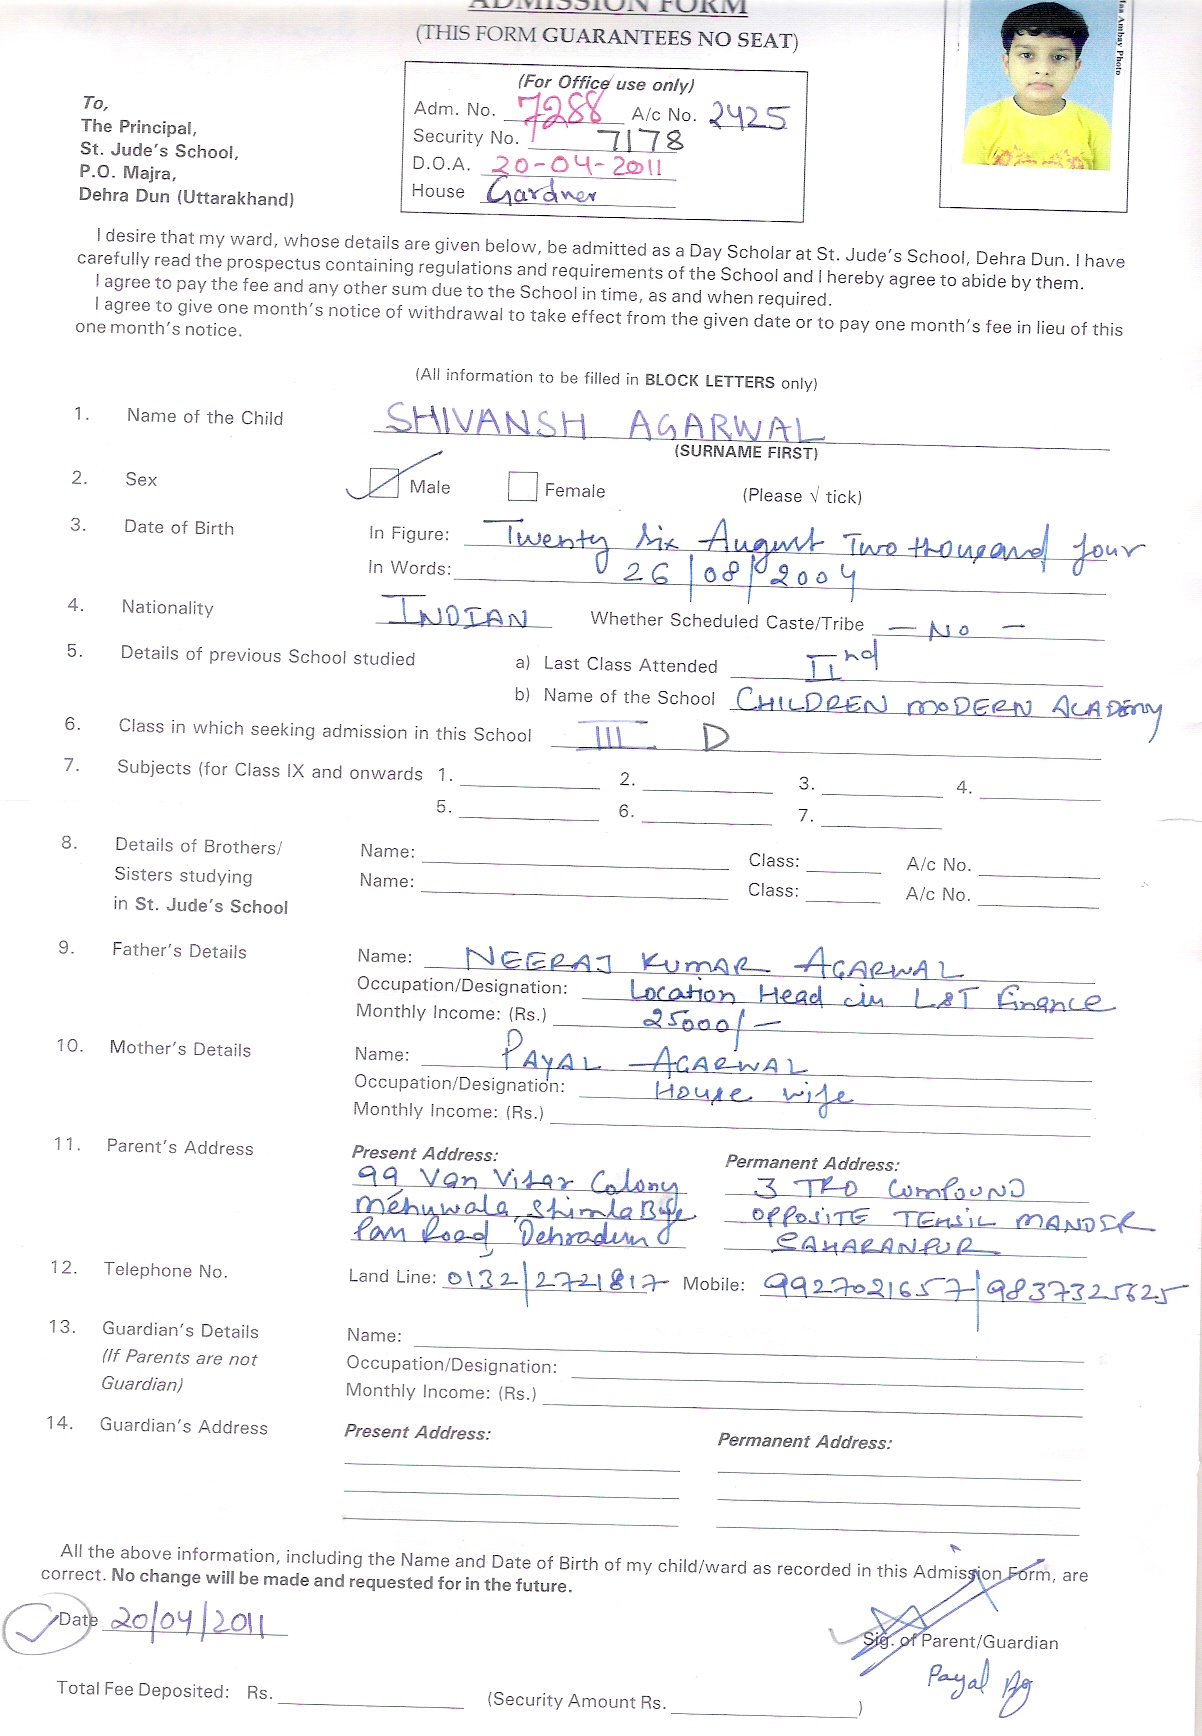 ADMISSION FORM
(THIS FORM GUARANTEES NO SEAT)
(For Office use only)
Adm. No. 7288 A/c No. 2425
Security No. 7178
D.O.A. 20-04-2011
House Gardner
To,
The Principal,
St. Jude's School,
P.O. Majra,
Dehra Dun (Uttarakhand)
Photo
I desire that my ward, whose details are given below, be admitted as a Day Scholar at St. Jude's School, Dehra Dun. I have
carefully read the prospectus containing regulations and requirements of the School and I hereby agree to abide by them.
I agree to pay the fee and any other sum due to the School in time, as and when required.
I agree to give one month's notice of withdrawal to take effect from the given date or to pay one month's fee in lieu of this
one month's notice.
(All information to be filled in BLOCK LETTERS only)
1. Name of the Child SHIVANSH AGARWAL
(SURNAME FIRST)
2. Sex Male Female (Please √ tick)
3. Date of Birth In Figure: Twenty Six August Two thousand four
In Words: 26/08/2004
4. Nationality INDIAN Whether Scheduled Caste/Tribe – No –
5. Details of previous School studied a) Last Class Attended IInd
b) Name of the School CHILDREN MODERN ACADEMY
6. Class in which seeking admission in this School III D
7. Subjects (for Class IX and onwards 1. 2. 3. 4.
5. 6. 7.
8. Details of Brothers/ Name: Class: A/c No.
Sisters studying Name: Class: A/c No.
in St. Jude's School
9. Father's Details Name: NEERAJ KUMAR AGARWAL
Occupation/Designation: Location Head in L&T Finance
Monthly Income: (Rs.) 25000/-
10. Mother's Details Name: PAYAL AGARWAL
Occupation/Designation: House wife
Monthly Income: (Rs.)
11. Parent's Address Present Address: Permanent Address:
99 Van Vihar Colony 3 TRO COMPOUND
Mehuwala, Shimla Bye OPPOSITE TEHSIL MANDIR
Pass Road, Dehradun SAHARANPUR
12. Telephone No. Land Line: 0132/2721817 Mobile: 9927021657/9837325625
13. Guardian's Details Name:
(If Parents are not Occupation/Designation:
Guardian) Monthly Income: (Rs.)
14. Guardian's Address Present Address: Permanent Address:
All the above information, including the Name and Date of Birth of my child/ward as recorded in this Admission Form, are
correct. No change will be made and requested for in the future.
Date 20/04/2011
Sig. of Parent/Guardian
Payal Ag
Total Fee Deposited: Rs. (Security Amount Rs. )